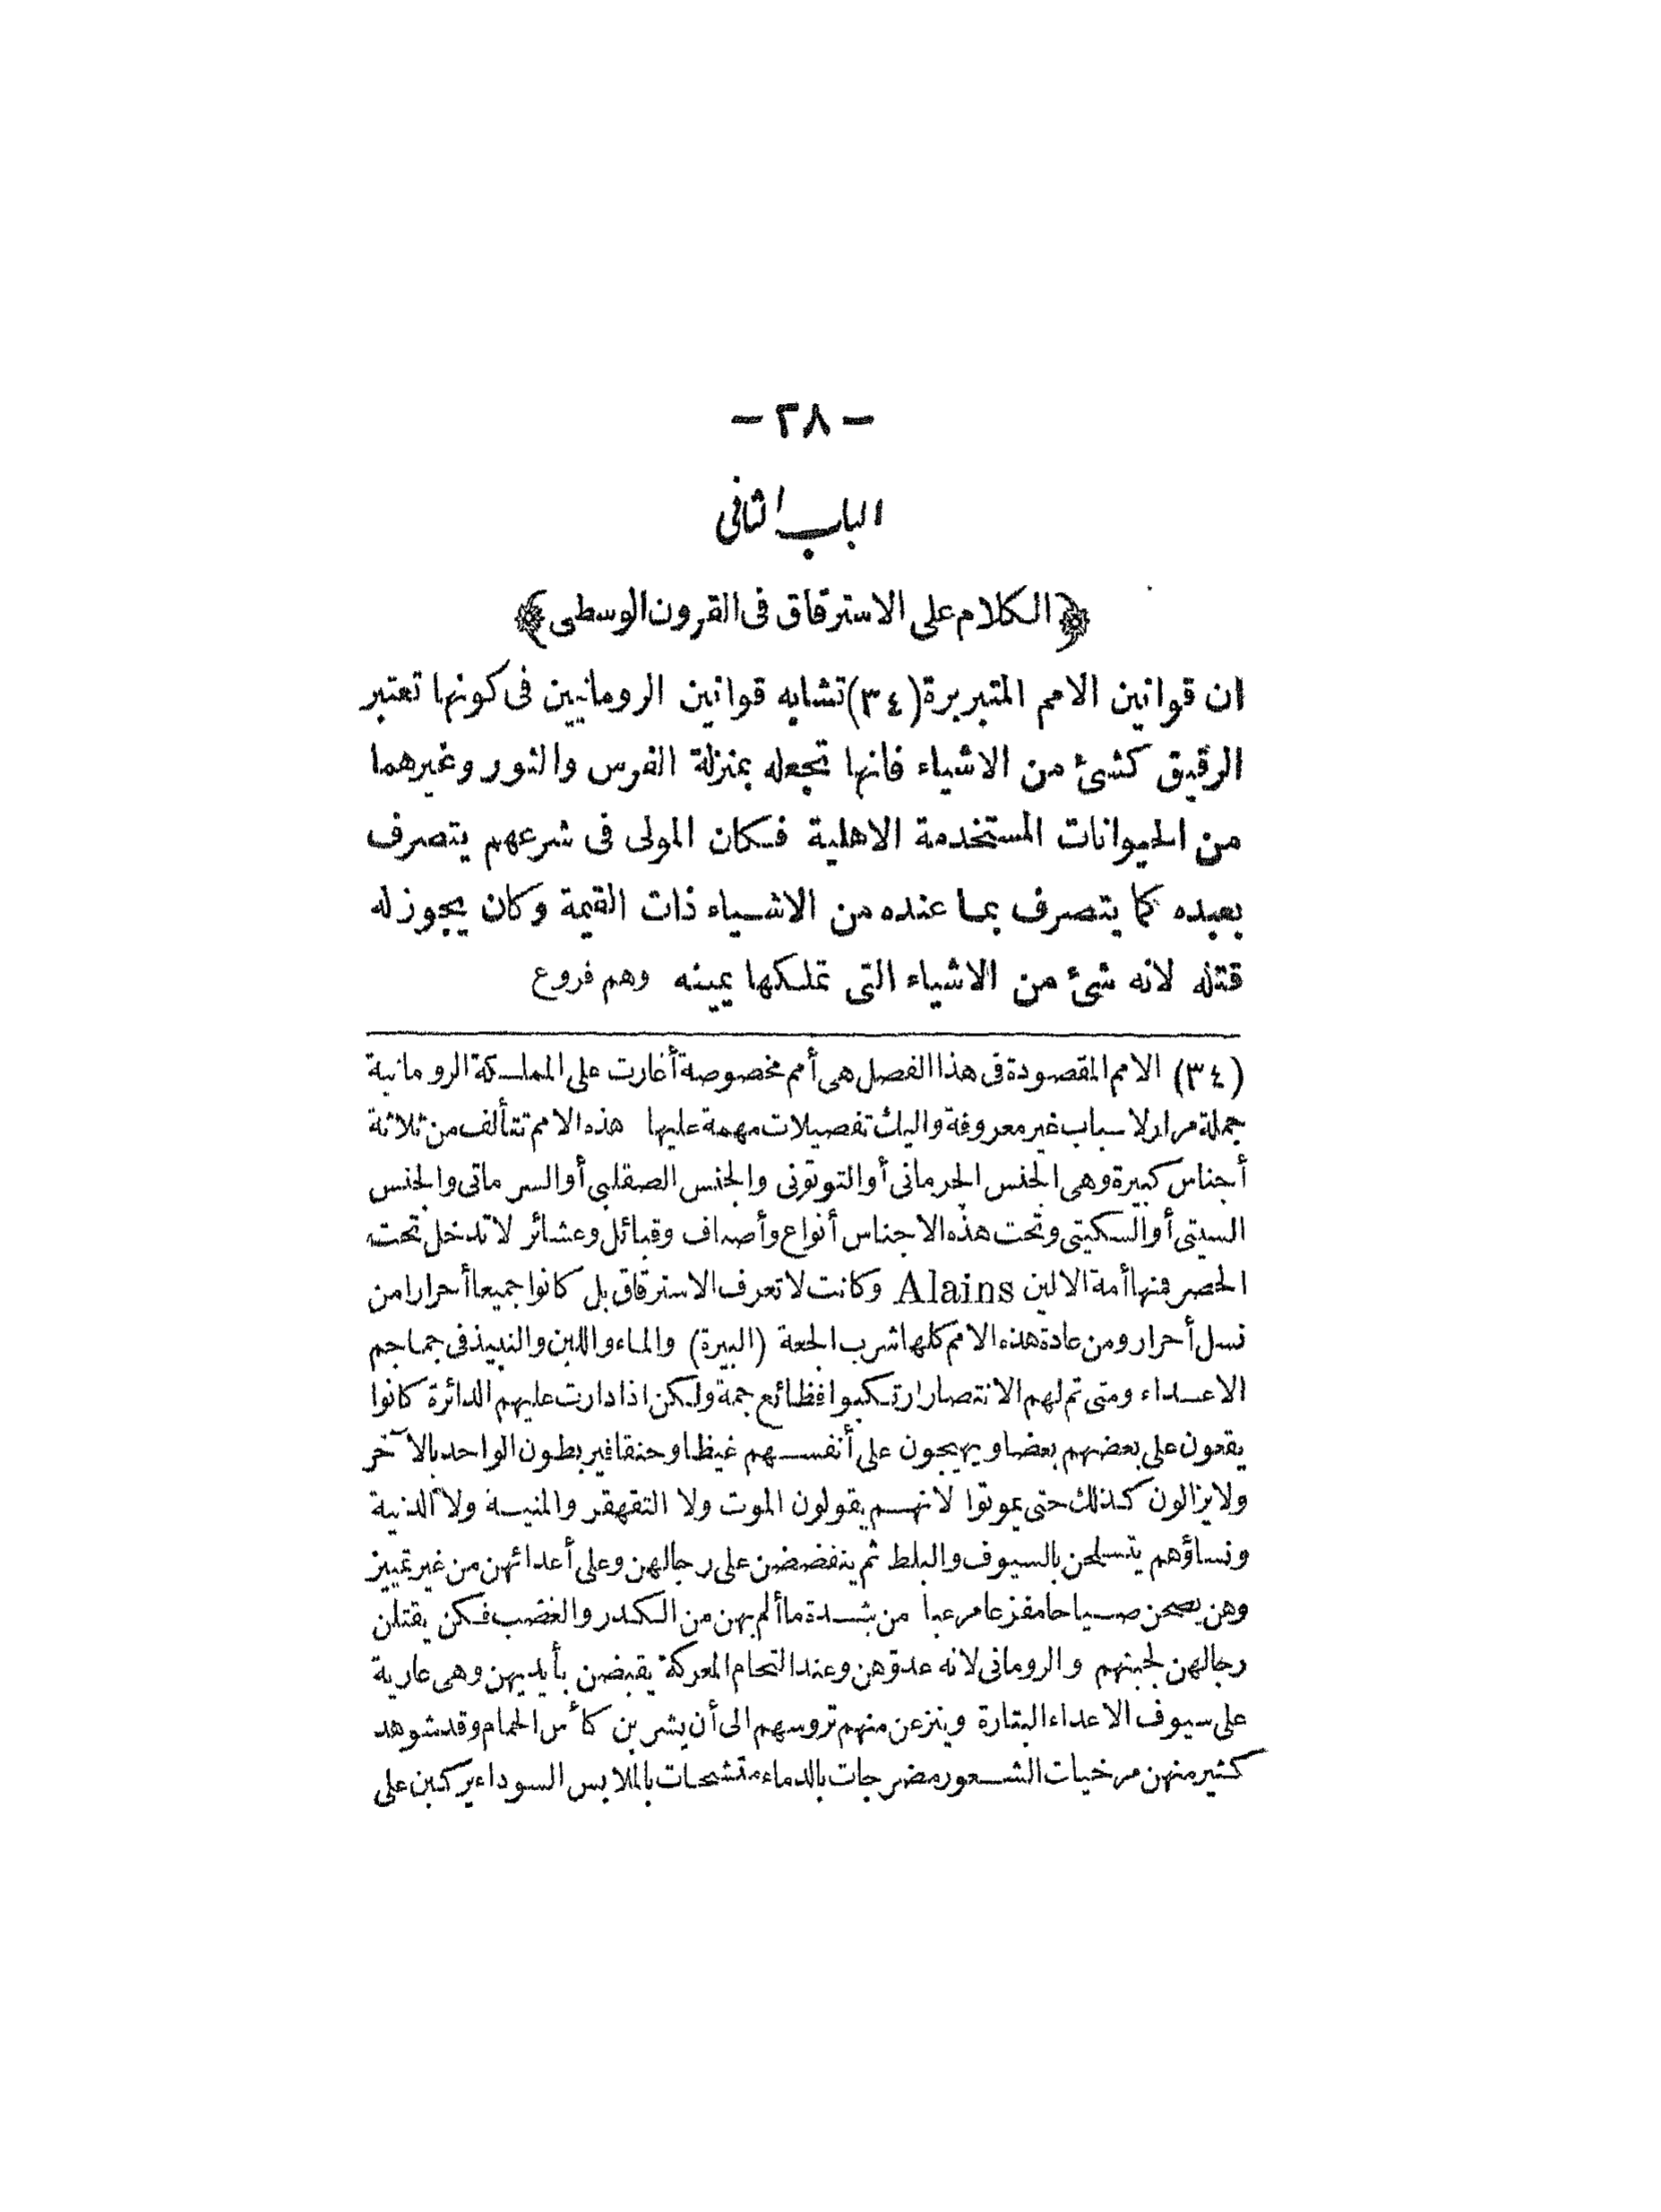 - ٢٨ -
الباب الثانى
﴿الكلام على الاسترقاق فى القرون الوسطى﴾
ان قوانين الامم المتبربرة (٣٤) تشابه قوانين الرومانيين فى كونها تعتبر
الرقيق كشئ من الاشياء فانها تجعله بمنزلة الفرس والثور وغيرهما
من الحيوانات المستخدمة الاهلية فكان المولى فى شرعهم يتصرف
بعبده كما يتصرف بما عنده من الاشياء ذات القيمة وكان يجوز له
قتله لانه شئ من الاشياء التى تملكها يمينه وهم فروع
(٣٤) الامم المقصودة فى هذا الفصل هى أمم مخصوصة أغارت على المملكة الرومانية
جملة مرار لاسباب غير معروفة واليك تفصيلات مهمة عليها هذه الامم تتألف من ثلاثة
أجناس كبيرة وهى الجنس الجرمانى أو التوتونى والجنس الصقلبى أو السرماتى والجنس
السيتى أو السكيتى وتحت هذه الاجناس أنواع وأصناف وقبائل وعشائر لا تدخل تحت
الحصر فمنها أمة الالين Alains وكانت لا تعرف الاسترقاق بل كانوا جميعا أحرارا من
نسل أحرار ومن عادة هذه الامم كلها شرب الجعة (البيرة) والماء واللبن والنبيذ فى جماجم
الاعداء ومتى تم لهم الانتصار ارتكبوا فظائع جمة ولكن اذا دارت عليهم الدائرة كانوا
يقعون على بعضهم بعضا ويهيجون على أنفسهم غيظا وحنقا فيربطون الواحد بالآخر
ولا يزالون كذلك حتى يموتوا لانهم يقولون الموت ولا التقهقر والمنية ولا الدنية
ونساؤهم يتسلحن بالسيوف والبلط ثم ينفضضن على رجالهن وعلى أعدائهن من غير تمييز
وهن يصحن صياحا مفزعا مرعبا من شدة ما ألم بهن من الكدر والغضب فكن يقتلن
رجالهن لجبنهم والرومانى لانه عدوّهن وعند التحام المعركة يقبضن بأيديهن وهى عارية
على سيوف الاعداء البتارة وينزعن منهم تروسهم الى أن يشربن كأس الحمام وقد شوهد
كثير منهن مرخيات الشعور مضرجات بالدماء متشحات بالملابس السوداء يركبن على